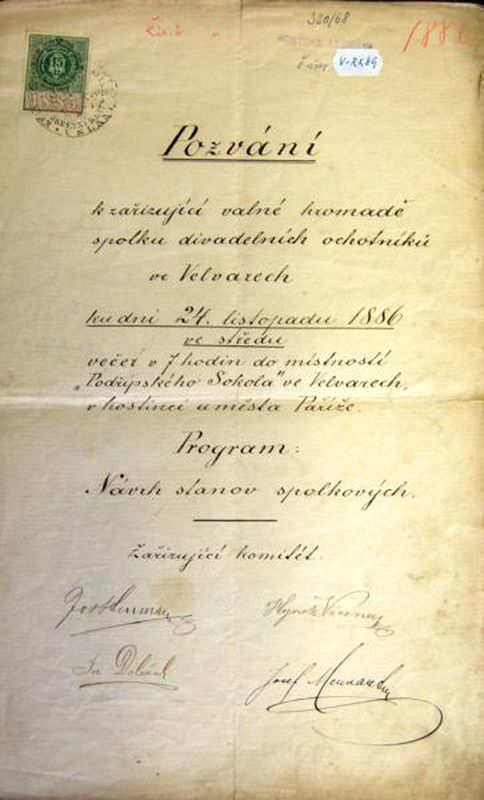 330/68
188
V-RK89
15
Pozvání
k zařizující valné hromadě
spolku divadelních ochotníků
ve Velvarech
ku dni 24. listopadu 1886
ve středu
večer v 7 hodin do místností
„Podřipského Sokola" ve Velvarech,
v hostinci u města Paříže.
Program:
Návrh stanov spolkových.
Zařizující komitét.
Hynek
Josef